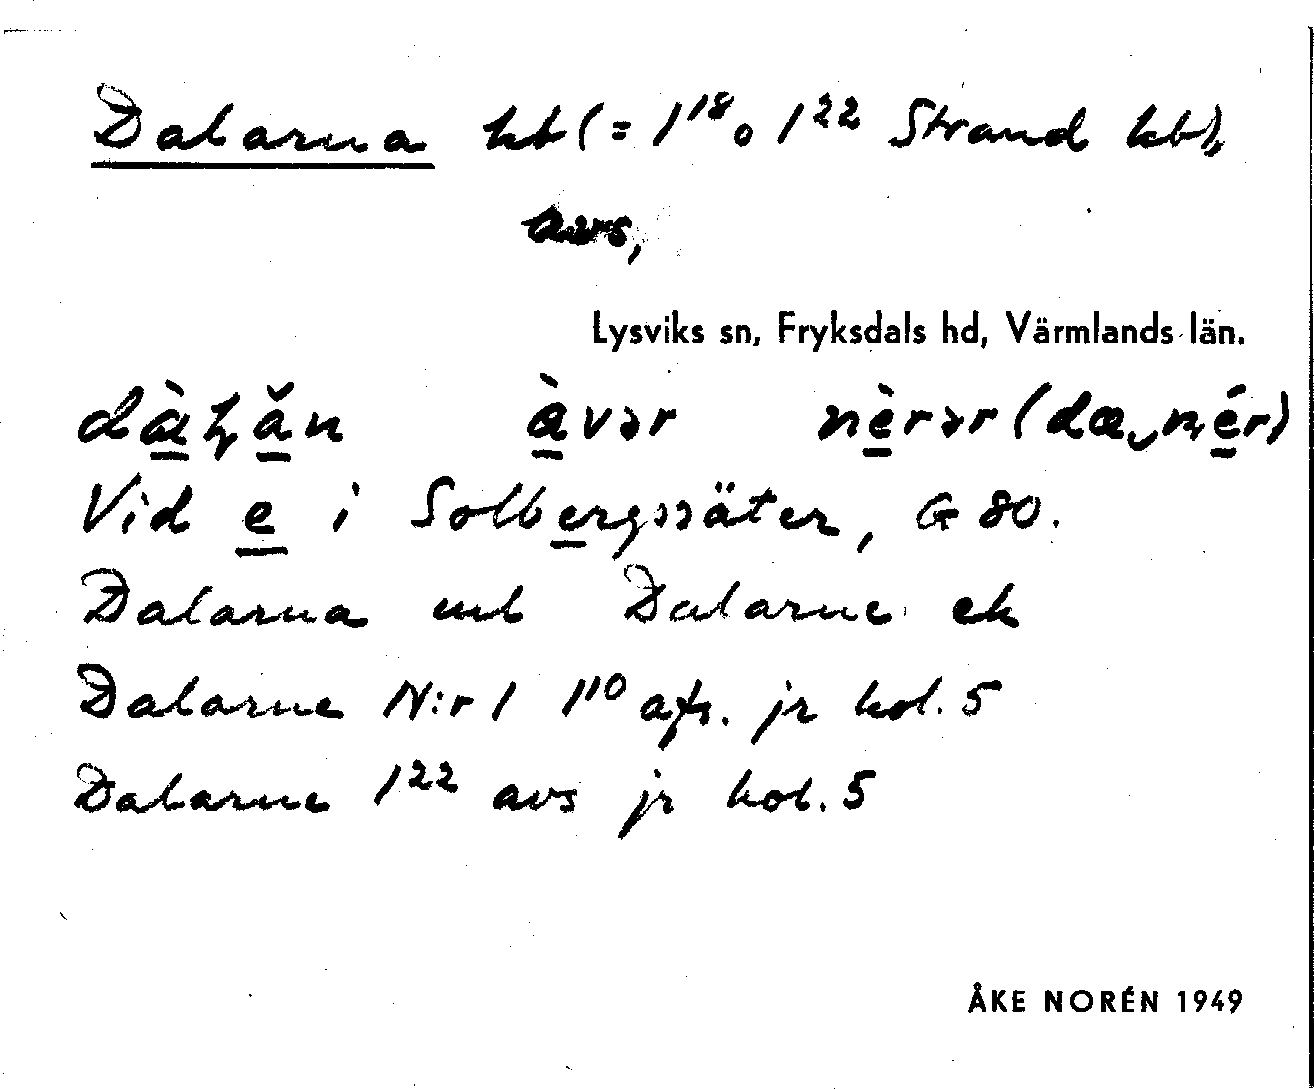 Dalarna kb (= 1¹⁸ o 1²² Strand kb),
avs,
Lysviks sn, Fryksdals hd, Värmlands län.
àvər nèrər
Vid e i Solbergssäter, G 80.
Dalarna ml Dalarne ek
Dalarne N:r 1 1¹⁰ afs. jr kol. 5
Dalarne 1²² avs jr kol. 5
ÅKE NORÉN 1949